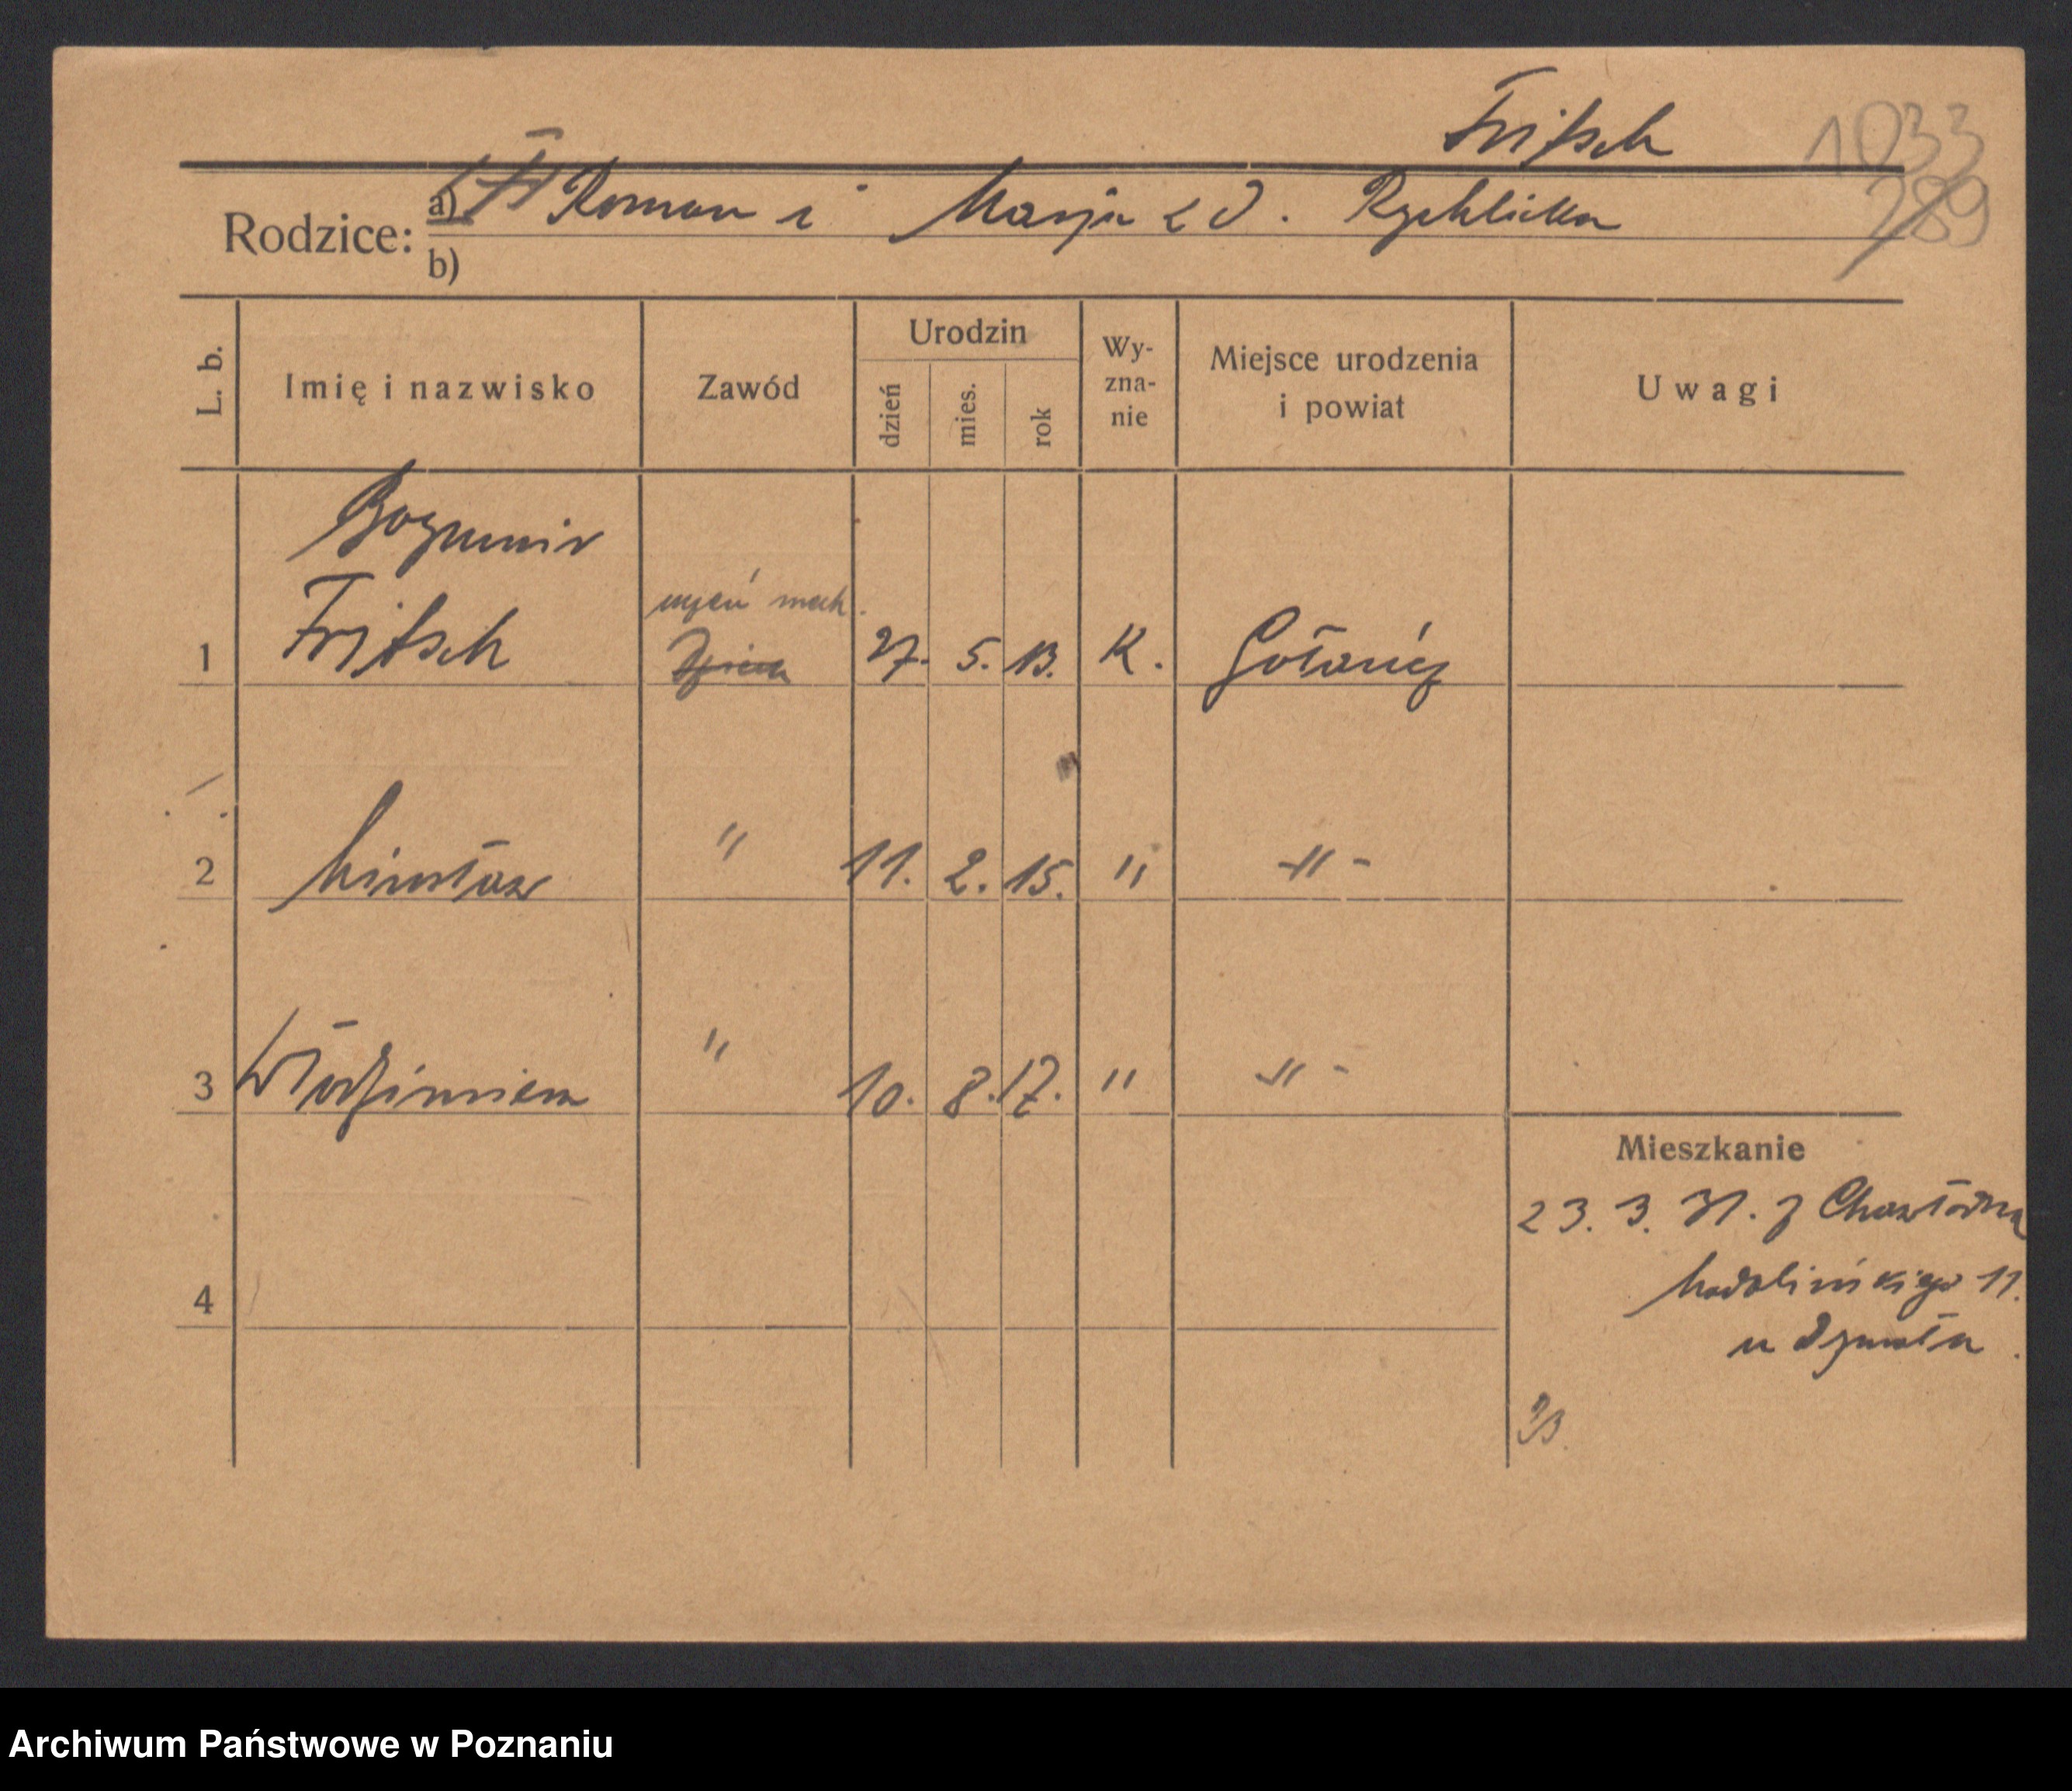 Fritsch
1033
289
Rodzice: a) Roman i Marja z d. Rychlicka
b)
L. b.
Imię i nazwisko
Zawód
Urodzin
dzień
mies.
rok
Wy-
zna-
nie
Miejsce urodzenia
i powiat
Uwagi
Bogumir
uczeń mech.
1 Fritsch 27. 5. 13. K. Gołańcz
2 Mirosław " 11. 2. 15. " -"-
3 Włodzimierz " 10. 8. 17. " -"-
Mieszkanie
23. 3. 31. z
4 Madalińskiego 11.
u
Archiwum Państwowe w Poznaniu